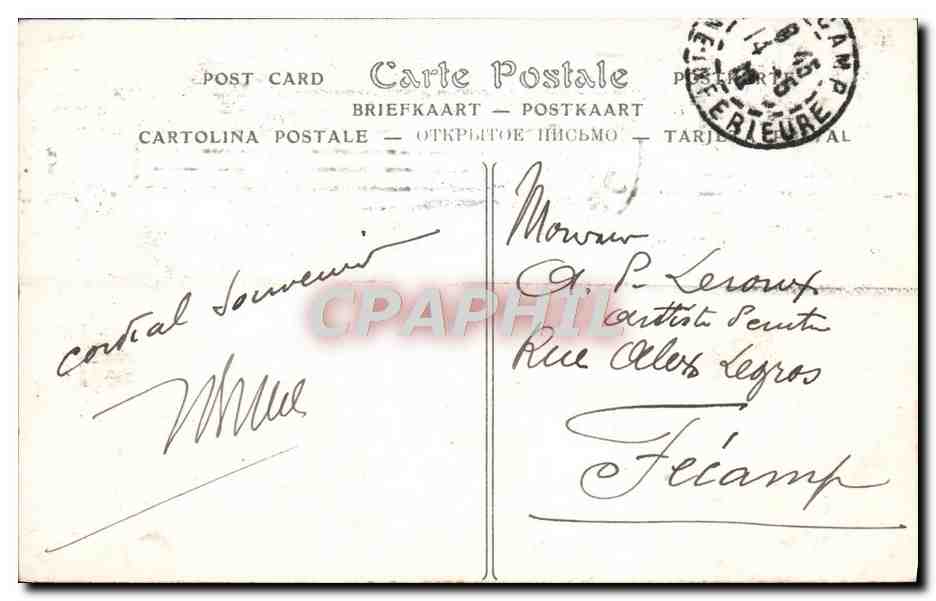 POST CARD Carte Postale
BRIEFKAART — POSTKAART
CARTOLINA POSTALE — ОТКРЫТОЕ ПИСЬМО — TARJE
cordial souvenir
Monsieur
A. P. Leroux
artiste Peintre
Rue Alex Legros
Fécamp
CPAPHIL